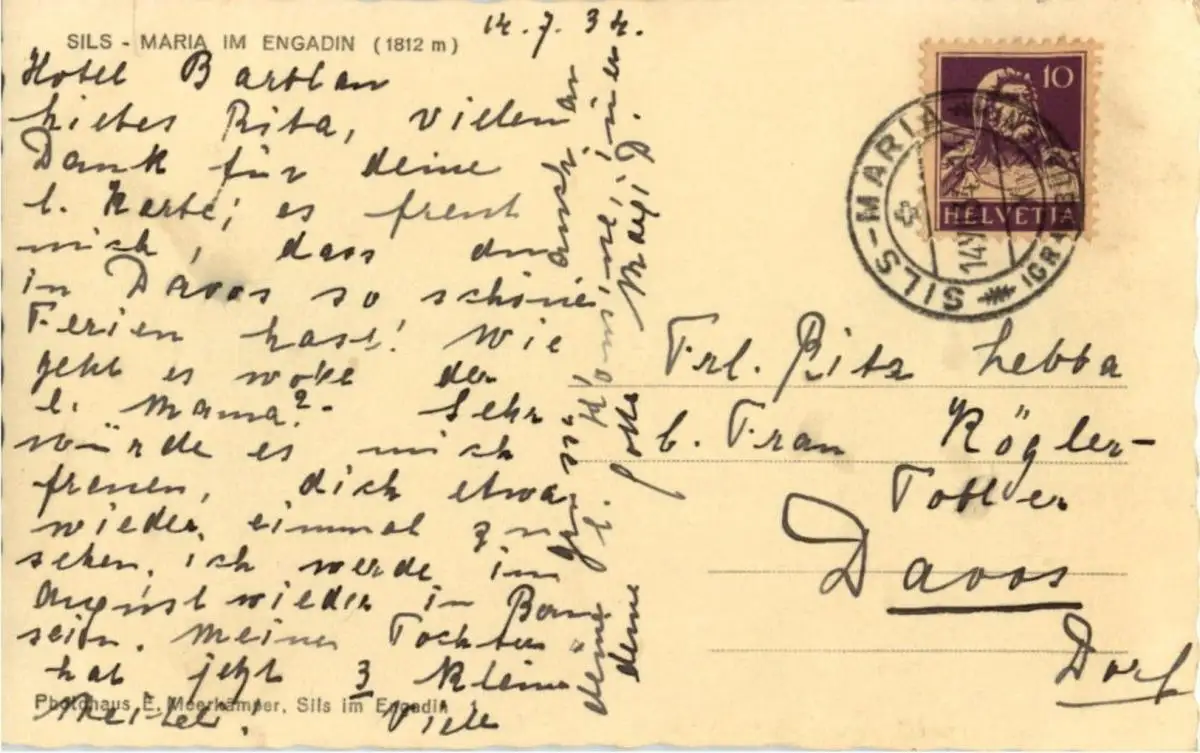 14.7.34.
SILS - MARIA IM ENGADIN (1812 m)
Hotel Barblan
Liebes Rita, vielen
Dank für deine
l. Karte; es freut
mich, dass du
in Davos so schöne
Ferien hast! Wie
geht es wohl der
l. Mama? - Sehr
würde es mich
freuen, dich etwa
wieder einmal zu
sehen. ich werde im
August wieder in Bern
sein. Meine Tochter
hat jetzt 3 kleine
Photohaus E. Meerkämper, Sils im Engadin
Viele
Grüsse auch an
deine l.
deine
10
HELVETIA
SILS-MARIA
Frl. Rita Lebba
b. Frau Kögler-
Tobler
Davos
Dorf